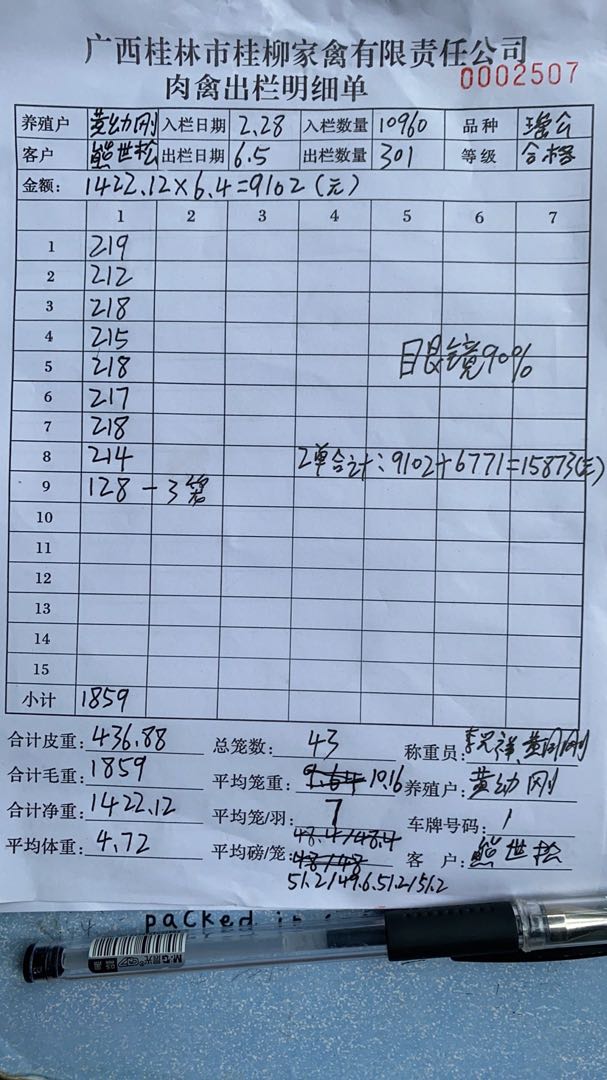 广西桂林市桂柳家禽有限责任公司
肉禽出栏明细单 0002507
养殖户 黄幼刚 入栏日期 2.28 入栏数量 10960 品种 瑶公
客户 熊世松 出栏日期 6.5 出栏数量 301 等级 合格
金额: 1422.12×6.4=9102(元)
1 2 3 4 5 6 7
1 219
2 212
3 218
4 215
5 218 目艮镜90%
6 217
7 218
8 214 2单合计:9102+6771=15873(元)
9 128-3笼
10
11
12
13
14
15
小计 1859
合计皮重: 436.88 总笼数: 43 称重员: 黄幼刚
合计毛重: 1859 平均笼重: 9.64 10.16 养殖户: 黄幼刚
合计净重: 1422.12 平均笼/羽: 7 车牌号码: 1
平均体重: 4.72 平均磅/笼: 48.4/48.4 客 户: 熊世松
48/48
51.2/49.6.51.2/51.2
packed
M&G晨光